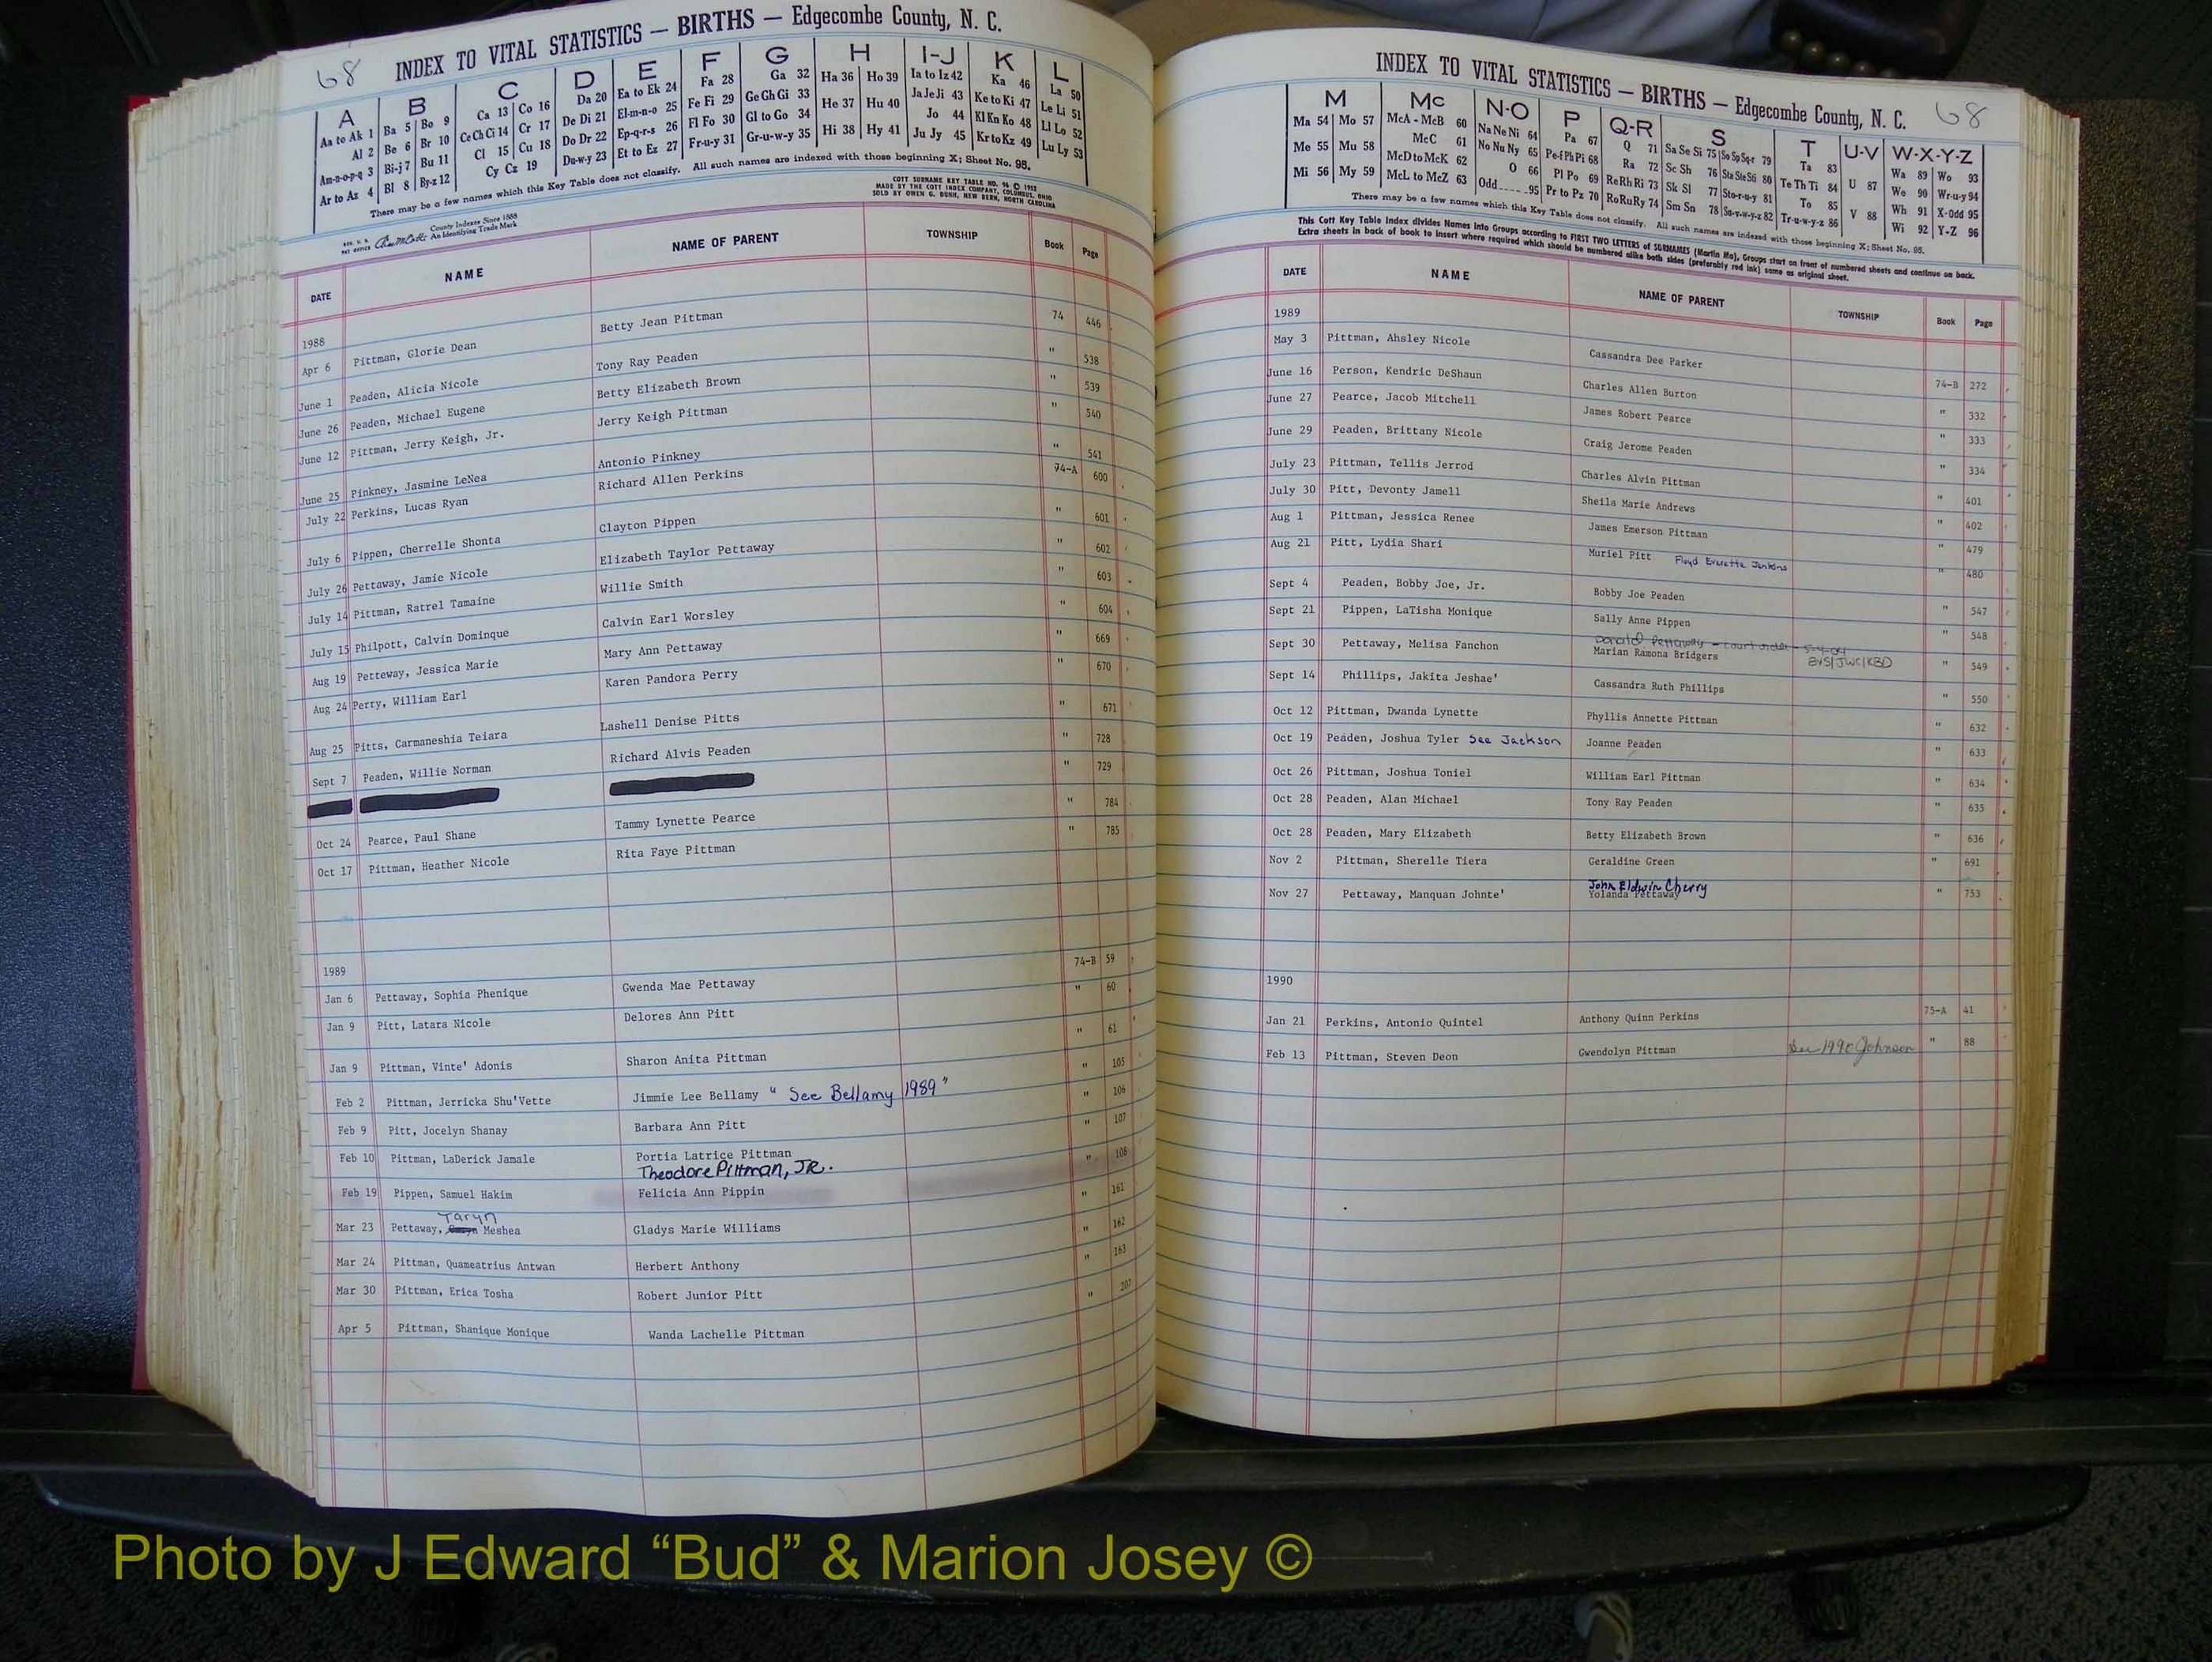 68
INDEX TO VITAL STATISTICS — BIRTHS — Edgecombe County, N. C.
A B C D E F G H I-J K L
Aa to Ak 1 Ba 5 Bo 9 Ca 13 Co 16 Da 20 Ea to Ek 24 Fa 28 Ga 32 Ha 36 Ho 39 Ia to Iz 42 Ka 46 La 50
Al 2 Be 6 Br 10 Ce Ch Ci 14 Cr 17 De Di 21 El-m-n-o 25 Fe Fi 29 Ge Gh Gi 33 He 37 Hu 40 Ja Je Ji 43 Ke to Ki 47 Le Li 51
Am-n-o-p-q 3 Bi-j 7 Bu 11 Cl 15 Cu 18 Do Dr 22 Ep-q-r-s 26 Fl Fo 30 Gl to Go 34 Hi 38 Hy 41 Jo 44 Kl Kn Ko 48 Ll Lo 52
Ar to Az 4 Bl 8 By-z 12 Cy Cz 19 Du-w-y 23 Et to Ez 27 Fr-u-y 31 Gr-u-w-y 35 Ju Jy 45 Kr to Kz 49 Lu Ly 53
There may be a few names which this Key Table does not classify. All such names are indexed with those beginning X; Sheet No. 98.
County Indexes Since 1888
An Identifying Trade Mark
COTT SURNAME KEY TABLE NO. 96 © 1952
MADE BY THE COTT INDEX COMPANY, COLUMBUS, OHIO
SOLD BY OWEN G. DUNN, NEW BERN, NORTH CAROLINA
DATE NAME NAME OF PARENT TOWNSHIP Book Page
1988
Apr 6 Pittman, Glorie Dean Betty Jean Pittman 74 446
June 1 Peaden, Alicia Nicole Tony Ray Peaden " 538
June 26 Peaden, Michael Eugene Betty Elizabeth Brown " 539
June 12 Pittman, Jerry Keigh, Jr. Jerry Keigh Pittman " 540
June 25 Pinkney, Jasmine LeNea Antonio Pinkney " 541
July 22 Perkins, Lucas Ryan Richard Allen Perkins 74-A 600
July 6 Pippen, Cherrelle Shonta Clayton Pippen " 601
July 26 Pettaway, Jamie Nicole Elizabeth Taylor Pettaway " 602
July 14 Pittman, Ratrel Tamaine Willie Smith " 603
July 15 Philpott, Calvin Dominque Calvin Earl Worsley " 604
Aug 19 Petteway, Jessica Marie Mary Ann Pettaway " 669
Aug 24 Perry, William Earl Karen Pandora Perry " 670
Aug 25 Pitts, Carmaneshia Teiara Lashell Denise Pitts " 671
Sept 7 Peaden, Willie Norman Richard Alvis Peaden " 728
" 729
Oct 24 Pearce, Paul Shane Tammy Lynette Pearce " 784
Oct 17 Pittman, Heather Nicole Rita Faye Pittman " 785
1989
Jan 6 Pettaway, Sophia Phenique Gwenda Mae Pettaway 74-B 59
Jan 9 Pitt, Latara Nicole Delores Ann Pitt " 60
Jan 9 Pittman, Vinte' Adonis Sharon Anita Pittman " 61
Feb 2 Pittman, Jerricka Shu'Vette Jimmie Lee Bellamy " See Bellamy 1989 " " 105
Feb 9 Pitt, Jocelyn Shanay Barbara Ann Pitt " 106
Feb 10 Pittman, LaDerick Jamale Portia Latrice Pittman " 107
Theodore Pittman, JR.
Feb 19 Pippen, Samuel Hakim Felicia Ann Pippin " 108
Taryn
Mar 23 Pettaway, Meshea Gladys Marie Williams " 161
Mar 24 Pittman, Quameatrius Antwan Herbert Anthony " 162
Mar 30 Pittman, Erica Tosha Robert Junior Pitt " 163
Apr 5 Pittman, Shanique Monique Wanda Lachelle Pittman " 207
INDEX TO VITAL STATISTICS — BIRTHS — Edgecombe County, N. C. 68
M Mc N-O P Q-R S T U-V W-X-Y-Z
Ma 54 Mo 57 McA - McB 60 Na Ne Ni 64 Pa 67 Q 71 Sa Se Si 75 So Sp Sq-r 79 Ta 83 U 87 Wa 89 Wo 93
Me 55 Mu 58 McC 61 No Nu Ny 65 Pe-f Ph Pi 68 Ra 72 Sc Sh 76 Sta Ste Sti 80 Te Th Ti 84 V 88 We 90 Wr-u-y 94
Mi 56 My 59 McD to McK 62 O 66 Pl Po 69 Re Rh Ri 73 Sk Sl 77 Sto-r-u-y 81 To 85 Wh 91 X-Odd 95
McL to McZ 63 Odd 95 Pr to Pz 70 Ro Ru Ry 74 Sm Sn 78 Su-v-w-y-z 82 Tr-u-w-y-z 86 Wi 92 Y-Z 96
There may be a few names which this Key Table does not classify. All such names are indexed with those beginning X; Sheet No. 95.
This Cott Key Table Index divides Names into Groups according to FIRST TWO LETTERS of SURNAMES (Martin Ma), Groups start on front of numbered sheets and continue on back.
Extra sheets in back of book to insert where required which should be numbered alike both sides (preferably red ink) same as original sheet.
DATE NAME NAME OF PARENT TOWNSHIP Book Page
1989
May 3 Pittman, Ahsley Nicole Cassandra Dee Parker 74-B 272
June 16 Person, Kendric DeShaun Charles Allen Burton " 332
June 27 Pearce, Jacob Mitchell James Robert Pearce " 333
June 29 Peaden, Brittany Nicole Craig Jerome Peaden " 334
July 23 Pittman, Tellis Jerrod Charles Alvin Pittman " 401
July 30 Pitt, Devonty Jamell Sheila Marie Andrews " 402
Aug 1 Pittman, Jessica Renee James Emerson Pittman " 479
Aug 21 Pitt, Lydia Shari Muriel Pitt Floyd Everette Jenkins " 480
Sept 4 Peaden, Bobby Joe, Jr. Bobby Joe Peaden " 547
Sept 21 Pippen, LaTisha Monique Sally Anne Pippen " 548
Donald Pettaway - court order - 5-4-04
Sept 30 Pettaway, Melisa Fanchon Marian Ramona Bridgers BVS/JWC/KBD " 549
Sept 14 Phillips, Jakita Jeshae' Cassandra Ruth Phillips " 550
Oct 12 Pittman, Dwanda Lynette Phyllis Annette Pittman " 632
Oct 19 Peaden, Joshua Tyler See Jackson Joanne Peaden " 633
Oct 26 Pittman, Joshua Toniel William Earl Pittman " 634
Oct 28 Peaden, Alan Michael Tony Ray Peaden " 635
Oct 28 Peaden, Mary Elizabeth Betty Elizabeth Brown " 636
Nov 2 Pittman, Sherelle Tiera Geraldine Green " 691
John Eldwin Cherry
Nov 27 Pettaway, Manquan Johnte' Yolanda Pettaway " 753
1990
Jan 21 Perkins, Antonio Quintel Anthony Quinn Perkins 75-A 41
Feb 13 Pittman, Steven Deon Gwendolyn Pittman See 1990 Johnson " 88
Photo by J Edward “Bud” & Marion Josey ©